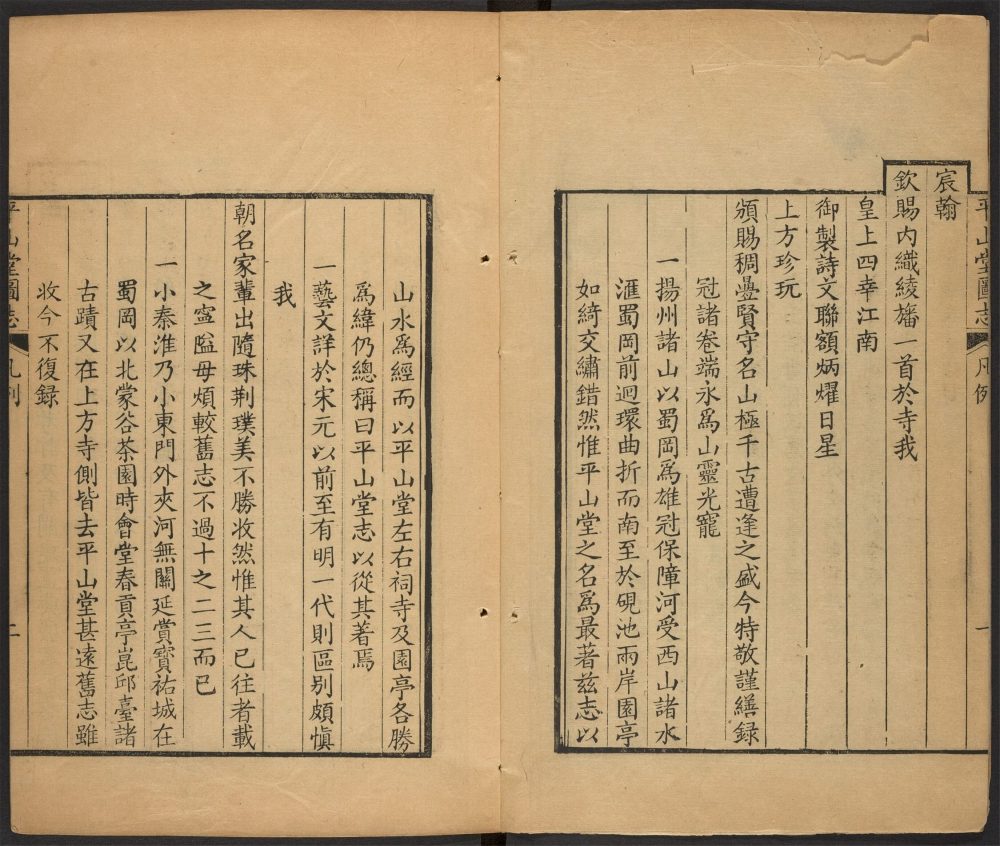 平山堂圖志 凡例 一
宸翰
欽賜内織綾旛一首於寺我
皇上四幸江南
御製詩文聯額炳燿日星
上方珍玩
頒賜稠疊賢守名山極千古遭逢之盛今特敬謹繕録
冠諸卷端永爲山靈光寵
一揚州諸山以蜀岡爲雄冠保障河受西山諸水
滙蜀岡前迴環曲折而南至於硯池兩岸園亭
如綺交繡錯然惟平山堂之名爲最著兹志以
山水爲經而以平山堂左右祠寺及園亭各勝
爲緯仍總稱曰平山堂志以從其著焉
一藝文詳於宋元以前至有明一代則區别頗愼
我
朝名家輩出隨珠荆璞美不勝收然惟其人已往者載
之寧隘毋煩較舊志不過十之二三而已
一小秦淮乃小東門外夾河無關延賞寳祐城在
蜀岡以北蒙谷茶園時會堂春貢亭崑邱臺諸
古蹟又在上方寺側皆去平山堂甚遠舊志雖
收今不復録
平山堂圖志 凡例 二